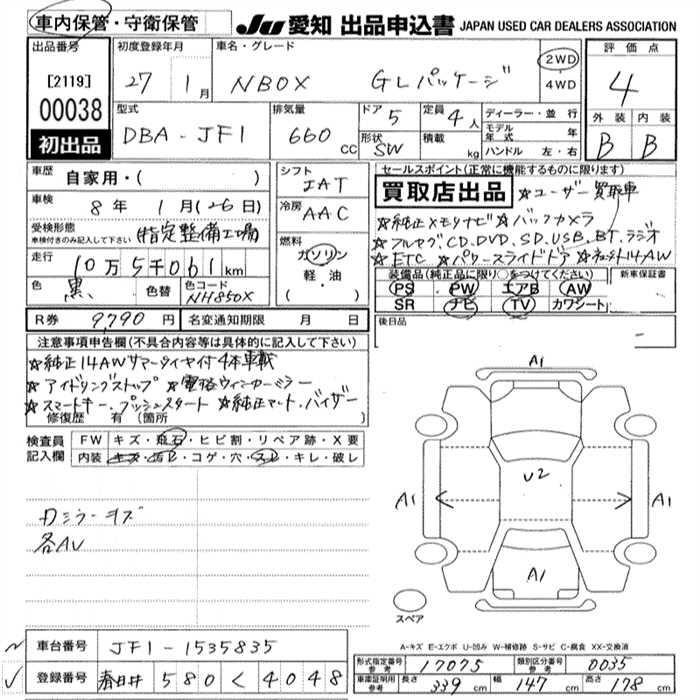 車内保管・守衛保管
JU 愛知 出品申込書 JAPAN USED CAR DEALERS ASSOCIATION
出品番号 初度登録年月 車名・グレード 評価点
[2119] 27 1月 NBOX GLパッケージ 2WD・4WD 4
00038
型式 排気量 ドア 5 定員 4人 ディーラー・並行 外装 内装
初出品 DBA-JF1 660cc 形状 SW 積載 kg モデル年式 年 B B
ハンドル 左・右
車歴 自家用・( ) シフト IAT セールスポイント(正常に機能するものに限ります)
車検 8年 1月(26日) 冷房 AAC 買取店出品 ☆ユーザー買取車
受検形態 車検付きのみ記入して下さい (指定整備工場) ☆純正メモリナビ☆バックカメラ
燃料 ガソリン・軽・油( ) ☆フルセグCD.DVD.SD.USB.BT.ラジオ
走行 10万5千061km ☆ETC ☆パワースライドドア
色 黒 色替 色コード NH850X 装備品(純正品に限り○をつけてください) 新車保証書
PS PW エアB AW
SR ナビ TV カワシート
R券 9,790円 名変通知期限 月 日 後日品
注意事項申告欄(不具合内容等は具体的に記入して下さい)
☆純正14AWサマータイヤ付4本車載
☆アイドリングストップ ☆電格ウィンカーミラー
☆スマートキー.プッシュスタート ☆純正マット.バイザー
修復歴 有(箇所
検査員記入欄 FW キズ・飛石・ヒビ割・リペア跡・X要
内装 キズ・汚レ・コゲ・穴・スレ・キレ・破レ
A1
U2
A1 A1
カミラーキズ
各AU
A1
スペア
A-キズ E-エクボ U-凹み W-補修跡 S-サビ C-腐食 XX-交換済
車台番号 JF1-1535835
形式指定番号 参考 17075 類別区分番号 参考 0035
登録番号 春日井 580 く 4048
車庫証明用 参考 長さ 339cm 幅 147cm 高さ 178cm